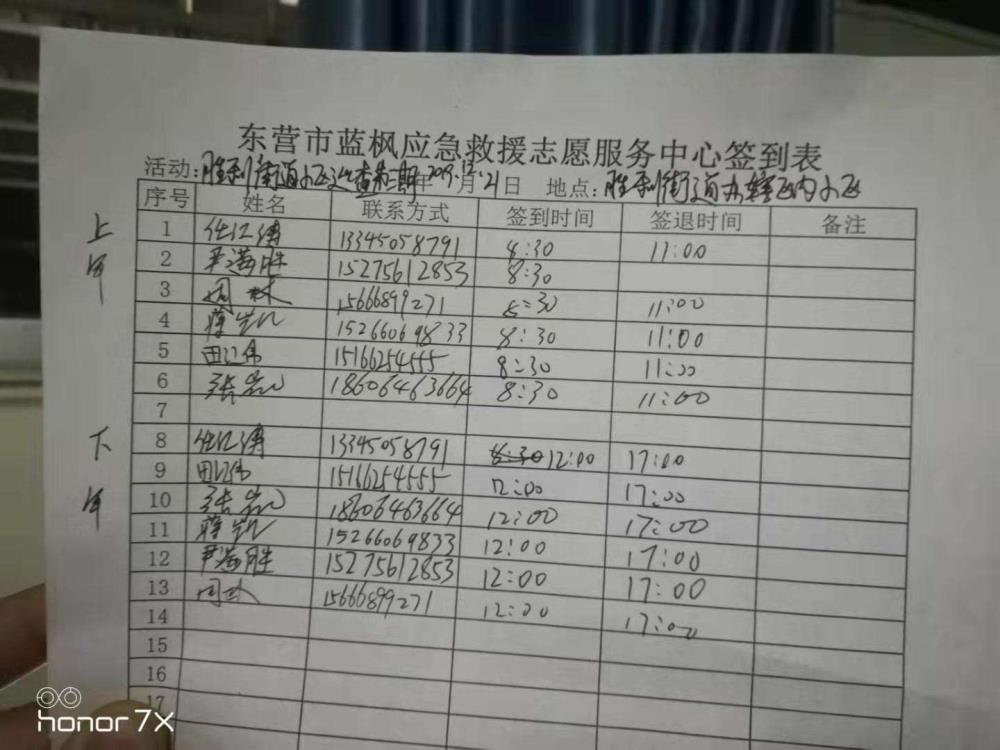 东营市蓝枫应急救援志愿服务中心签到表
活动：胜利街道小区 查 二期 年 2019.12月21日 地点：胜利街道办辖区内小区
序号 姓名 联系方式 签到时间 签退时间 备注
上午
1 任江涛 13345058791 8:30 11:00
2 尹满胜 15275612853 8:30
3 周林 15666899271 8:30 11:00
4 蒋岩 15266069833 8:30 11:00
5 田江伟 15166254555 8:30 11:00
6 张岩 18606463664 8:30 11:00
7
下午
8 任江涛 13345058791 8:30 12:00 17:00
9 田江伟 15166254555 12:00 17:00
10 张岩 18606463664 12:00 17:00
11 蒋岩 15266069833 12:00 17:00
12 尹满胜 15275612853 12:00 17:00
13 周林 15666899271 12:00 17:00
14
15
16
17
honor 7X